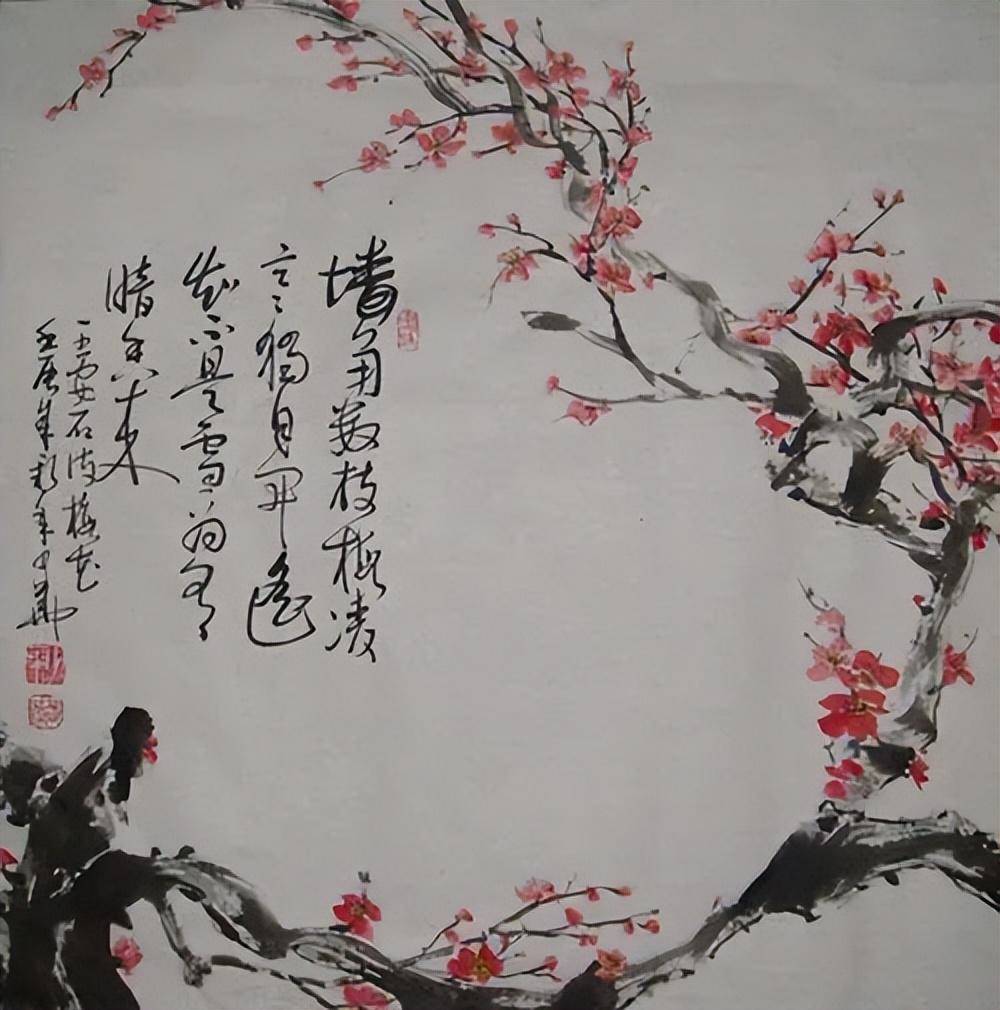 墙角数枝梅凌
寒獨自开遥
知不是雪为有
暗香来
王安石诗梅花
壬辰年